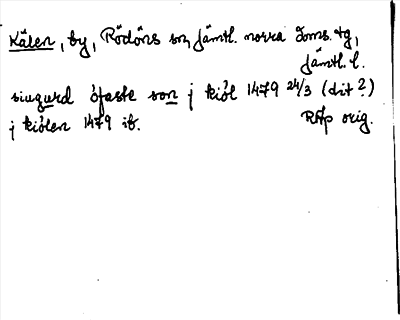 Kälen, by, Rödöns sn, Jämtl. norra doms. tg,
Jämtl. l.
siugurd ófaste son j kiól 1479 24/3 (dit?)
j kiólen 1479 ib. RAp orig.